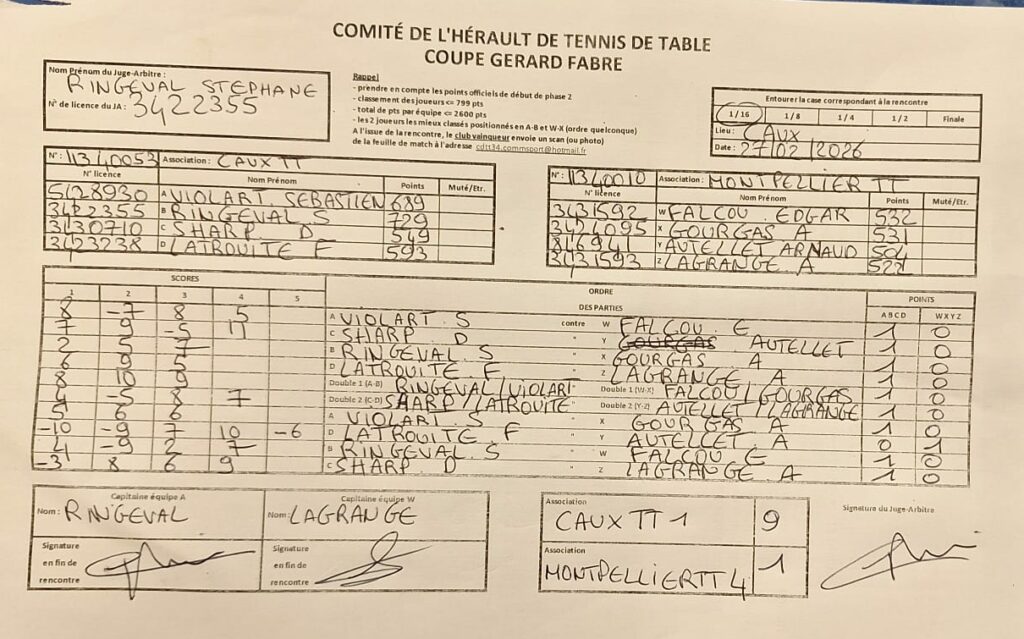 COMITÉ DE L'HÉRAULT DE TENNIS DE TABLE
COUPE GERARD FABRE
Nom Prénom du Juge-Arbitre :
RINGEVAL STEPHANE
N° de licence du JA : 3422355
Rappel
- prendre en compte les points officiels de début de phase 2
- classement des joueurs <= 799 pts
- total de pts par équipe <= 2600 pts
- les 2 joueurs les mieux classés positionnés en A-B et W-X (ordre quelconque)
A l'issue de la rencontre, le club vainqueur envoie un scan (ou photo)
de la feuille de match à l'adresse cdtt34.commsport@hotmail.fr
Entourer la case correspondant à la rencontre
1/16 1/8 1/4 1/2 Finale
Lieu : CAUX
Date : 27/02/2026
N° : 11340053 Association : CAUX TT
N° licence Nom Prénom Points Muté/Etr.
5428930 A VIOLART SEBASTIEN 689
3422355 B RINGEVAL S 729
3430710 C SHARP D 549
3423238 D LATROUITE F 593
N° : 11340010 Association : MONTPELLIER TT
N° licence Nom Prénom Points Muté/Etr.
3431592 W FALCOU EDGAR 532
3424095 X GOURGAS A 531
846941 Y AUTELLET ARNAUD 504
3431593 Z LAGRANGE A 522
SCORES ORDRE DES PARTIES POINTS
1 2 3 4 5 ABCD WXYZ
8 -7 8 5 A VIOLART. S contre W FALCOU. E 1 0
7 9 -5 11 C SHARP D " Y GOURGAS AUTELLET 1 0
2 5 7 B RINGEVAL. S " X GOURGAS A 1 0
6 9 5 D LATROUITE F " Z LAGRANGE A 1 0
8 10 9 Double 1 (A-B) RINGEVAL/VIOLART " Double 1 (W-X) FALCOU/GOURGAS 1 0
4 -5 8 7 Double 2 (C-D) SHARP/LATROUITE " Double 2 (Y-Z) AUTELLET/LAGRANGE 1 0
5 6 6 A VIOLART. S " X GOURGAS A 1 0
-10 -9 7 10 -6 D LATROUITE F " Y AUTELLET. A 0 1
4 -9 2 7 B RINGEVAL. S " W FALCOU E 1 0
-3 8 6 9 C SHARP. D " Z LAGRANGE A 1 0
Capitaine équipe A
Nom : RINGEVAL
Signature
en fin de
rencontre
Capitaine équipe W
Nom : LAGRANGE
Signature
en fin de
rencontre
Association
CAUX TT 1 9
Association
MONTPELLIER TT 4 1
Signature du Juge-Arbitre